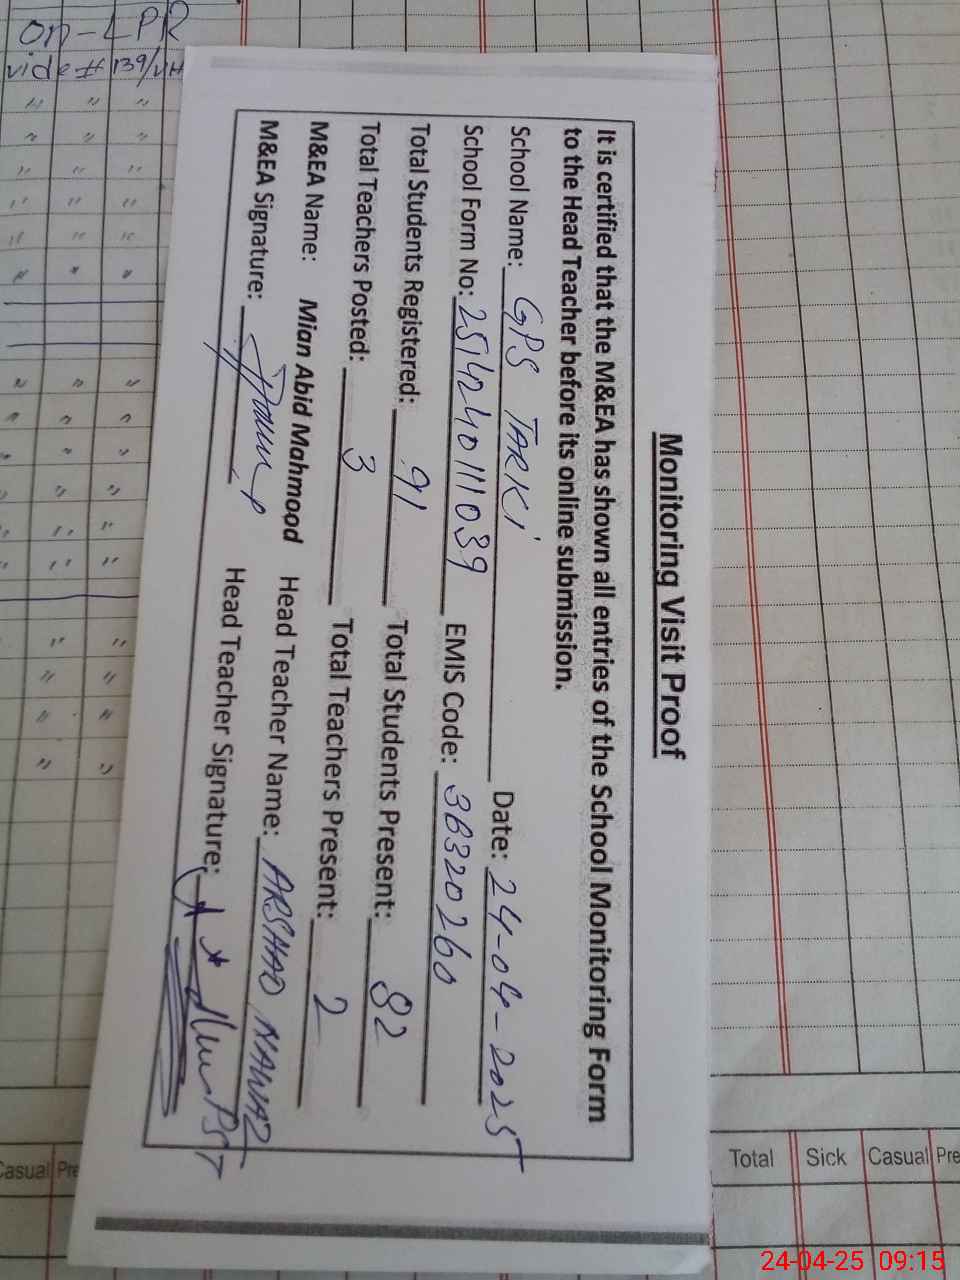 Monitoring Visit Proof
It is certified that the M&EA has shown all entries of the School Monitoring Form
to the Head Teacher before its online submission.
School Name: GPS TARKI Date: 24-04-2025
School Form No: 2514240111039 EMIS Code: 36320260
Total Students Registered: 91 Total Students Present: 82
Total Teachers Posted: 3 Total Teachers Present: 2
M&EA Name: Mian Abid Mahmood Head Teacher Name: ARSHAD NAWAZ
M&EA Signature: Head Teacher Signature: PST
on-LPR
vide #
Total Sick Casual Pre
Casual Pre
24-04-25 09:15